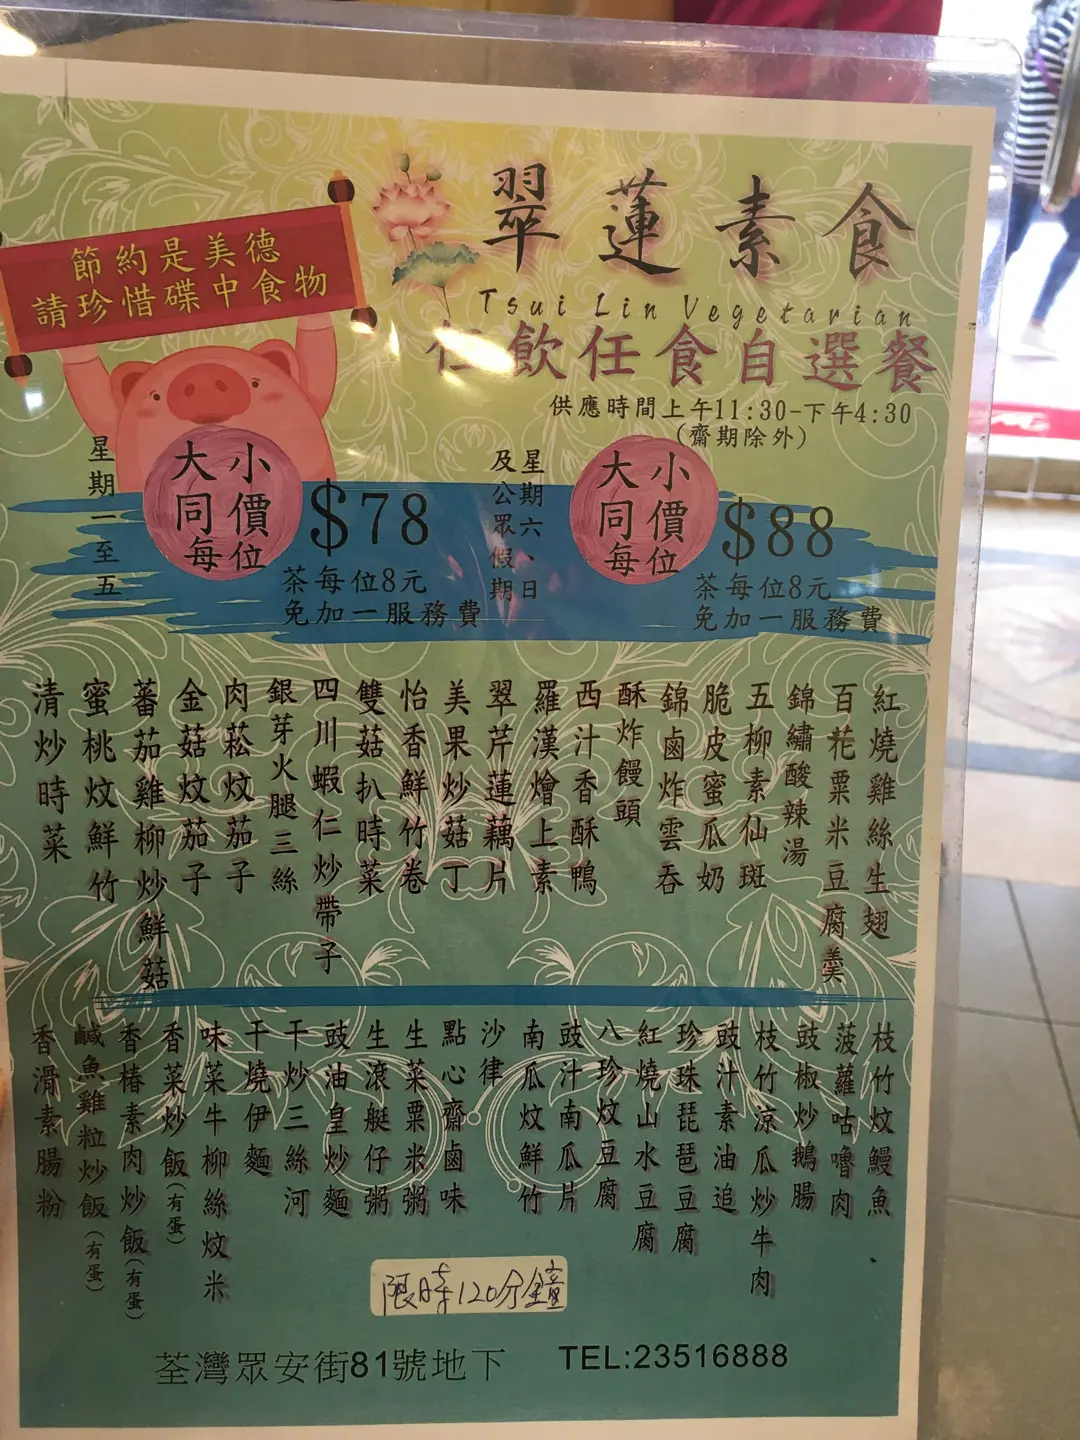 節約是美德
請珍惜碟中食物
翠蓮素食
Tsui Lin Vegetarian
任飲任食自選餐
供應時間上午11:30-下午4:30
(齋期除外)
星期一至五
大小同價每位
$78
茶每位8元
免加一服務費
星期六、日及公眾假期
大小同價每位
$88
茶每位8元
免加一服務費
紅燒雞絲生翅
百花粟米豆腐羹
錦繡酸辣湯
五柳素仙斑
脆皮蜜瓜奶
錦鹵炸雲吞
酥炸饅頭
西汁香酥鴨
羅漢燴上素
翠芹蓮藕片
美果炒菇丁
怡香鮮竹卷
雙菇扒時菜
四川蝦仁炒帶子
銀芽火腿三絲
肉菘炆茄子
金菇炆茄子
蕃茄雞柳炒鮮菇
蜜桃炆鮮竹
清炒時菜
枝竹炆鰻魚
菠蘿咕嚕肉
豉椒炒鵝腸
枝竹涼瓜炒牛肉
豉汁素油追
珍珠琵琶豆腐
紅燒山水豆腐
八珍炆豆腐
豉汁南瓜片
南瓜炆鮮竹
沙律
點心齋鹵味
生菜粟米粥
生滾艇仔粥
豉油皇炒麵
干炒三絲河
干燒伊麵
味菜牛柳絲炆米
香菜炒飯(有蛋)
香椿素肉炒飯(有蛋)
鹹魚雞粒炒飯(有蛋)
香滑素腸粉
限時120分鐘
荃灣眾安街81號地下 TEL:23516888